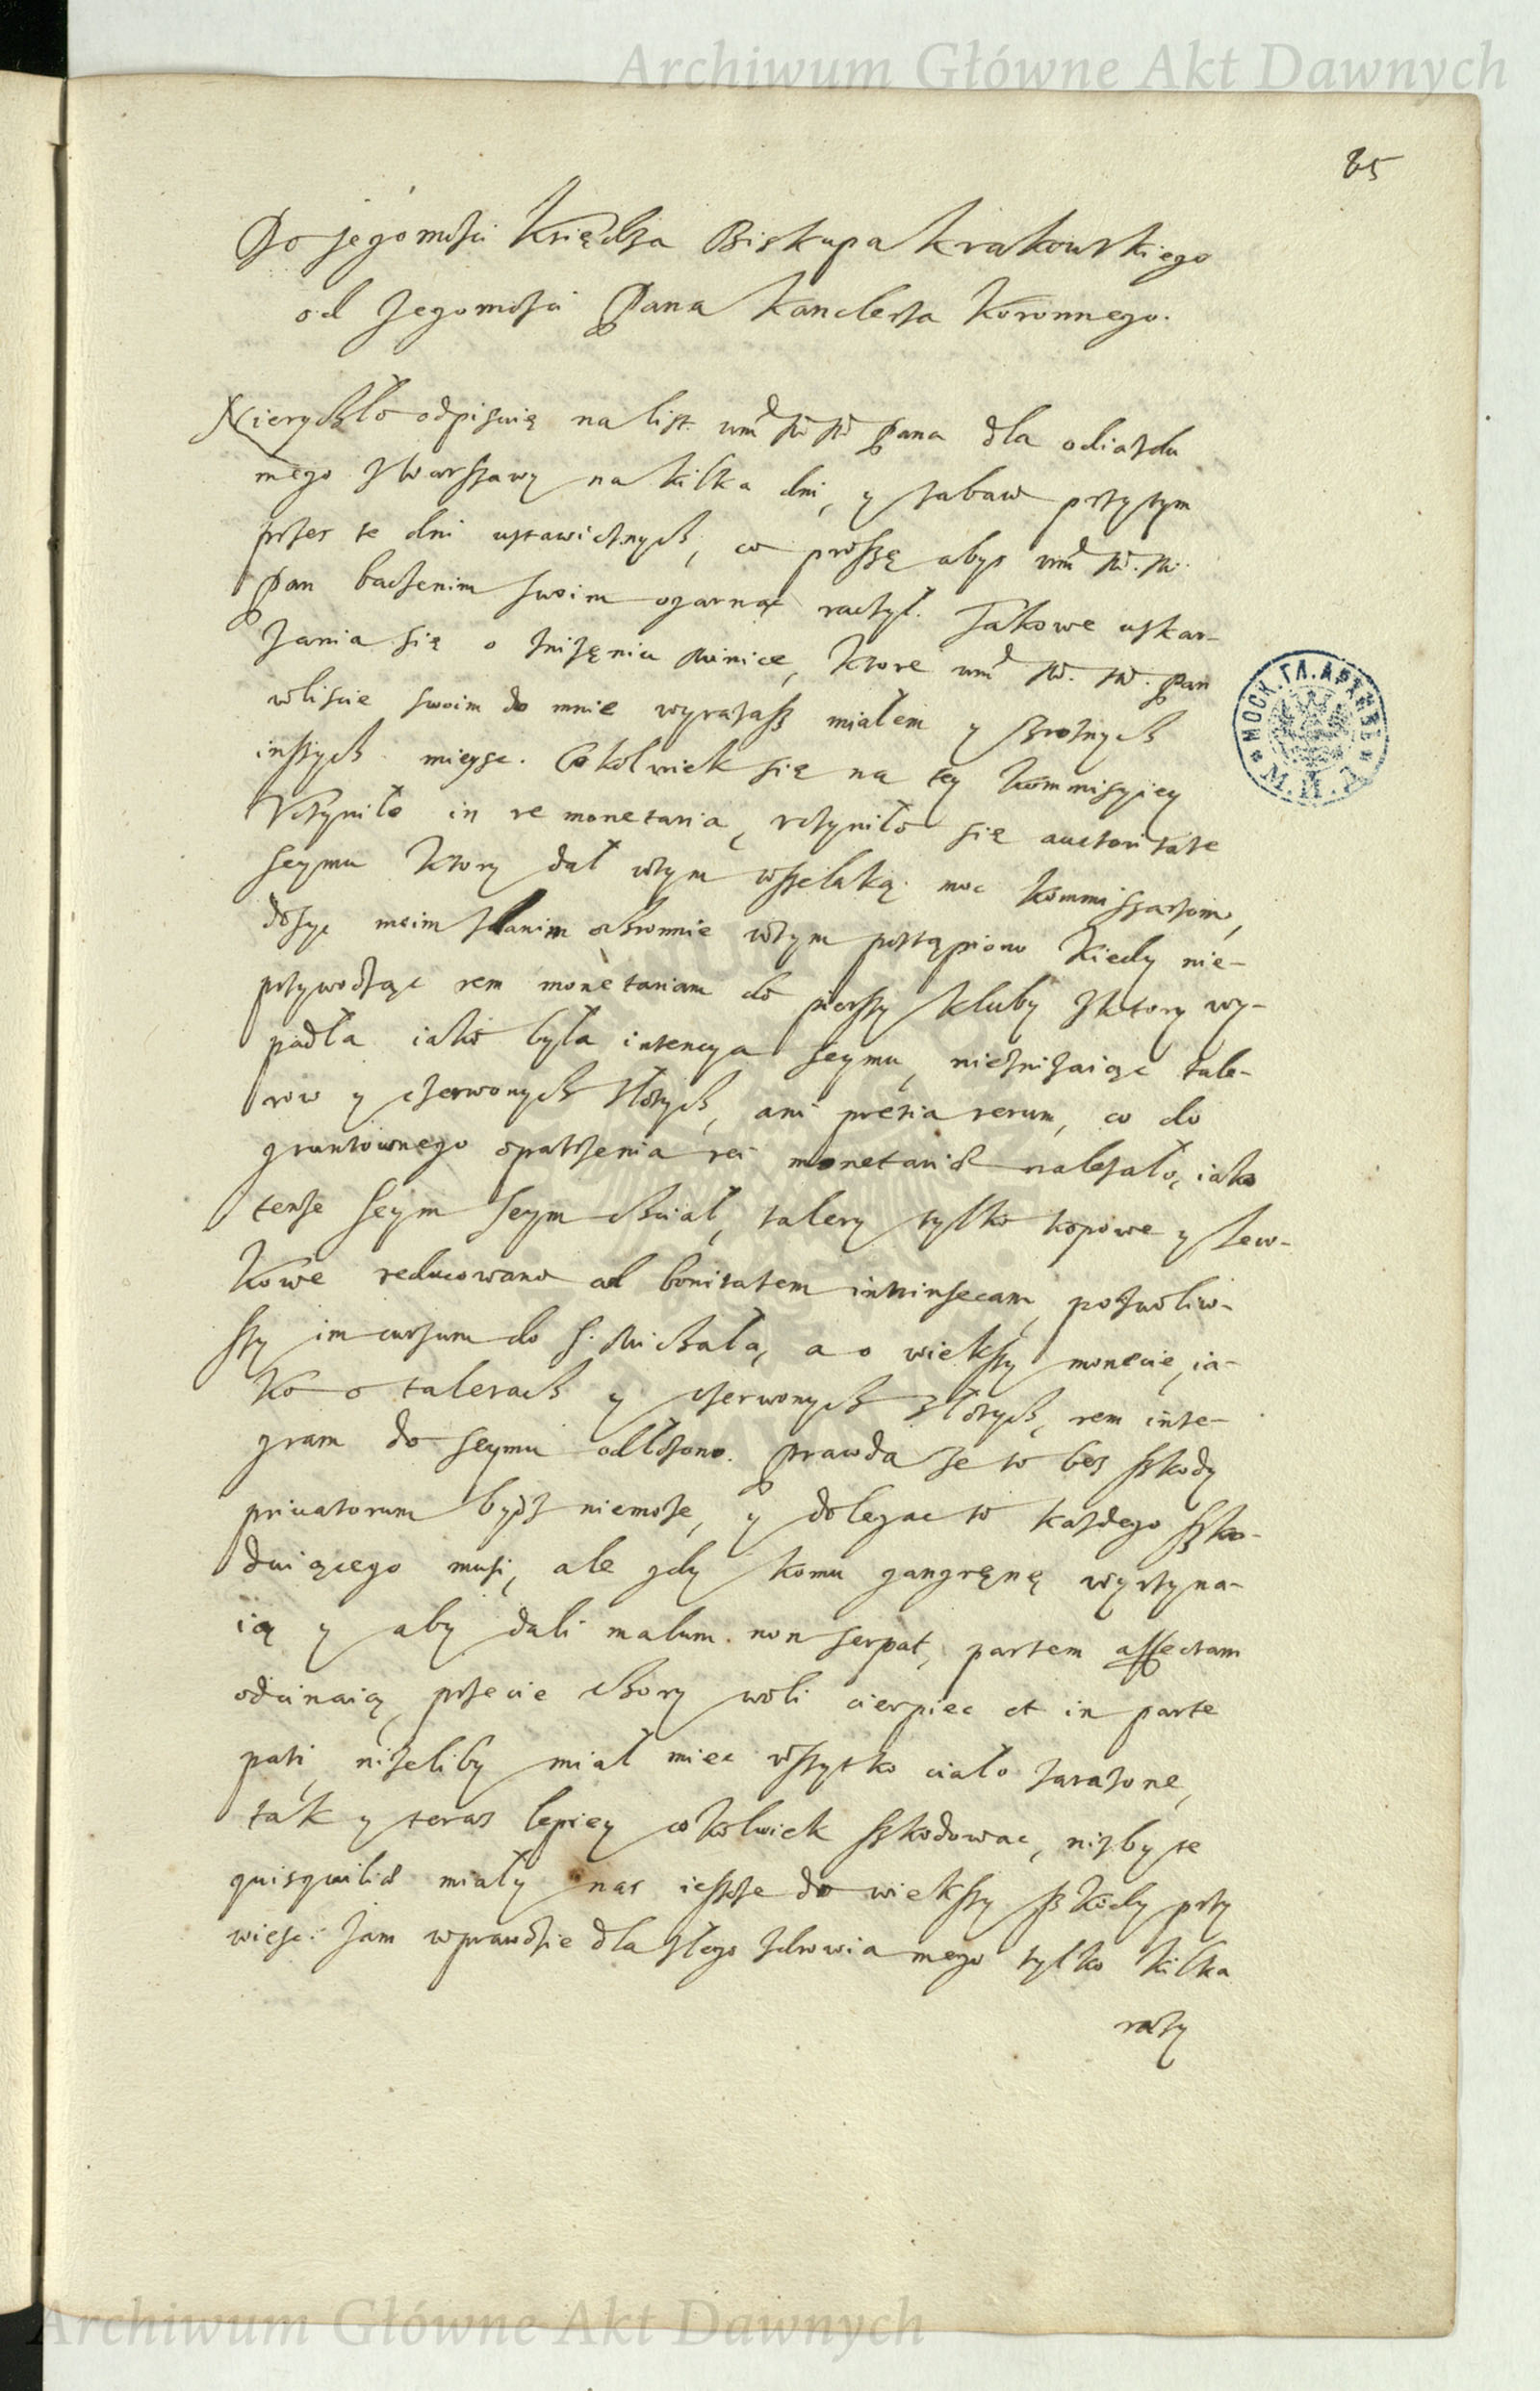 Archiwum Główne Akt Dawnych
85
Do Jegomości Księdza Biskupa Krakowskiego
od Jegomości Pana Kanclerza Koronnego.
Nierychło odpisuię na list wmć M M Pana dla odiazdu
mego z Warszawy na kilka dni, y zabaw przytym
przes te dni ustawicznych, co proszę abys wmć M. M.
Pan baczenim swoim ogarnąc raczył. Takowe uskar-
zania się o zniżęniu minice, ktore wmć M. M. Pan
wliscie swoim do mnie wyrazasz miałem y zroznych
inszych mieysc. Cokolwiek się na tey kommisyiey
Vczyniło in re monetaria, vczyniło się auctoritate
seymu ktory dał wtym wszelaką moc kommissarzom,
dosyc moim zdanim ochronnie wtym postąpiono kiedy nie-
przywodząc rem monetariam do pierszy kluby zktory wy-
padła iako była intencya seymu, nieznizaiąc tale-
row y czerwonych złotych, ani pretia rerum, co do
gruntownego opatrzenia rei monetariæ nalezało, iako
tenze seym seym chciał, talery tylko kopowe y Lew-
kowe reducowano ad bonitatem intrinsecam, pozwoliw-
szy im cursum do S. Michała, a o wiekszy monecie, ia-
ko o talerach y czerwonych złotych, rem inte-
gram do seymu odłozono. Prawda ze to bes szkody
priuatorum bydz niemoze, y dolegac to kazdego szko-
duiącego musi, ale gdy komu gangręnę wyrzyna-
ią y aby dali malum non serpat, partem affectam
odcinaią, przecie chory woli cierpiec et in parte
pati, nizeliby miał miec wszytko ciało zarazone,
tak y teras lepiey cokolwiek szkodowac, nizby te
quisquiliæ miały nas ieszcze do wiekszy szkody przy
wiesc. Jam wprawdzie dla złego zdrowia mego tylko kilka
razy
МОСК. ГЛ. АРХИВЪ М. И. Д.
Archiwum Główne Akt Dawnych